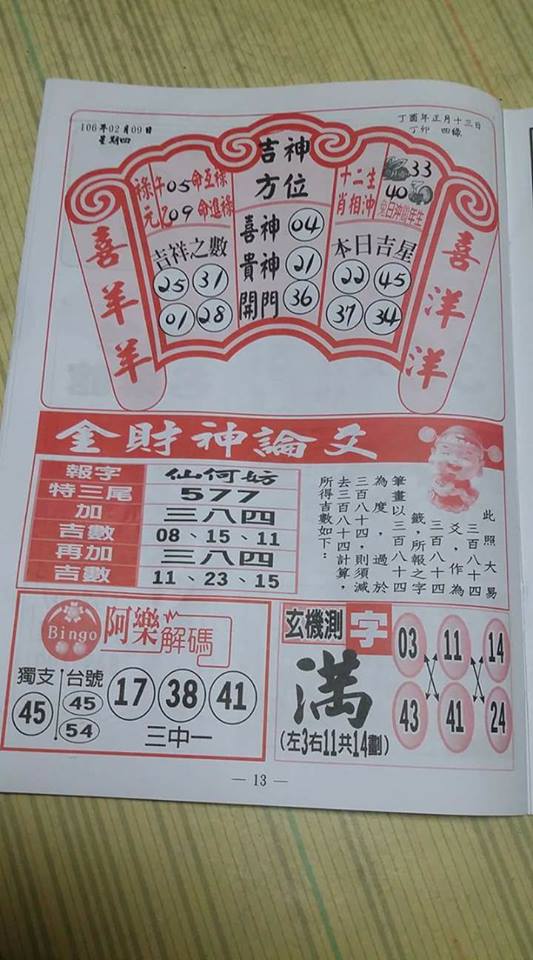 106年02月09日
星期四
丁酉年正月十三日
丁卯 四綠
吉神
方位
喜神 04
貴神 21
開門 36
祿 午05命互祿
元 乙09命進祿
吉祥之數
25 31
01 28
十二生
肖相沖
33
40
本日吉星
22 45
37 34
喜羊羊
喜洋洋
金財神論爻
報字 仙何妨
特三尾 577
加 三八四
吉數 08、15、11
再加 三八四
吉數 11、23、15
此照大易
三百八十四
爻，作為
三百八十四
籤，所報之字
筆畫以三百八十四
為度，過於
三百八十四，則須減
去三百八十四計算，
所得吉數如下：
Bingo
阿樂解碼
獨支
45
台號
45
54
17 38 41
三中一
玄機測字
滿
(左3右11共14劃)
03 11 14
43 41 24
— 13 —